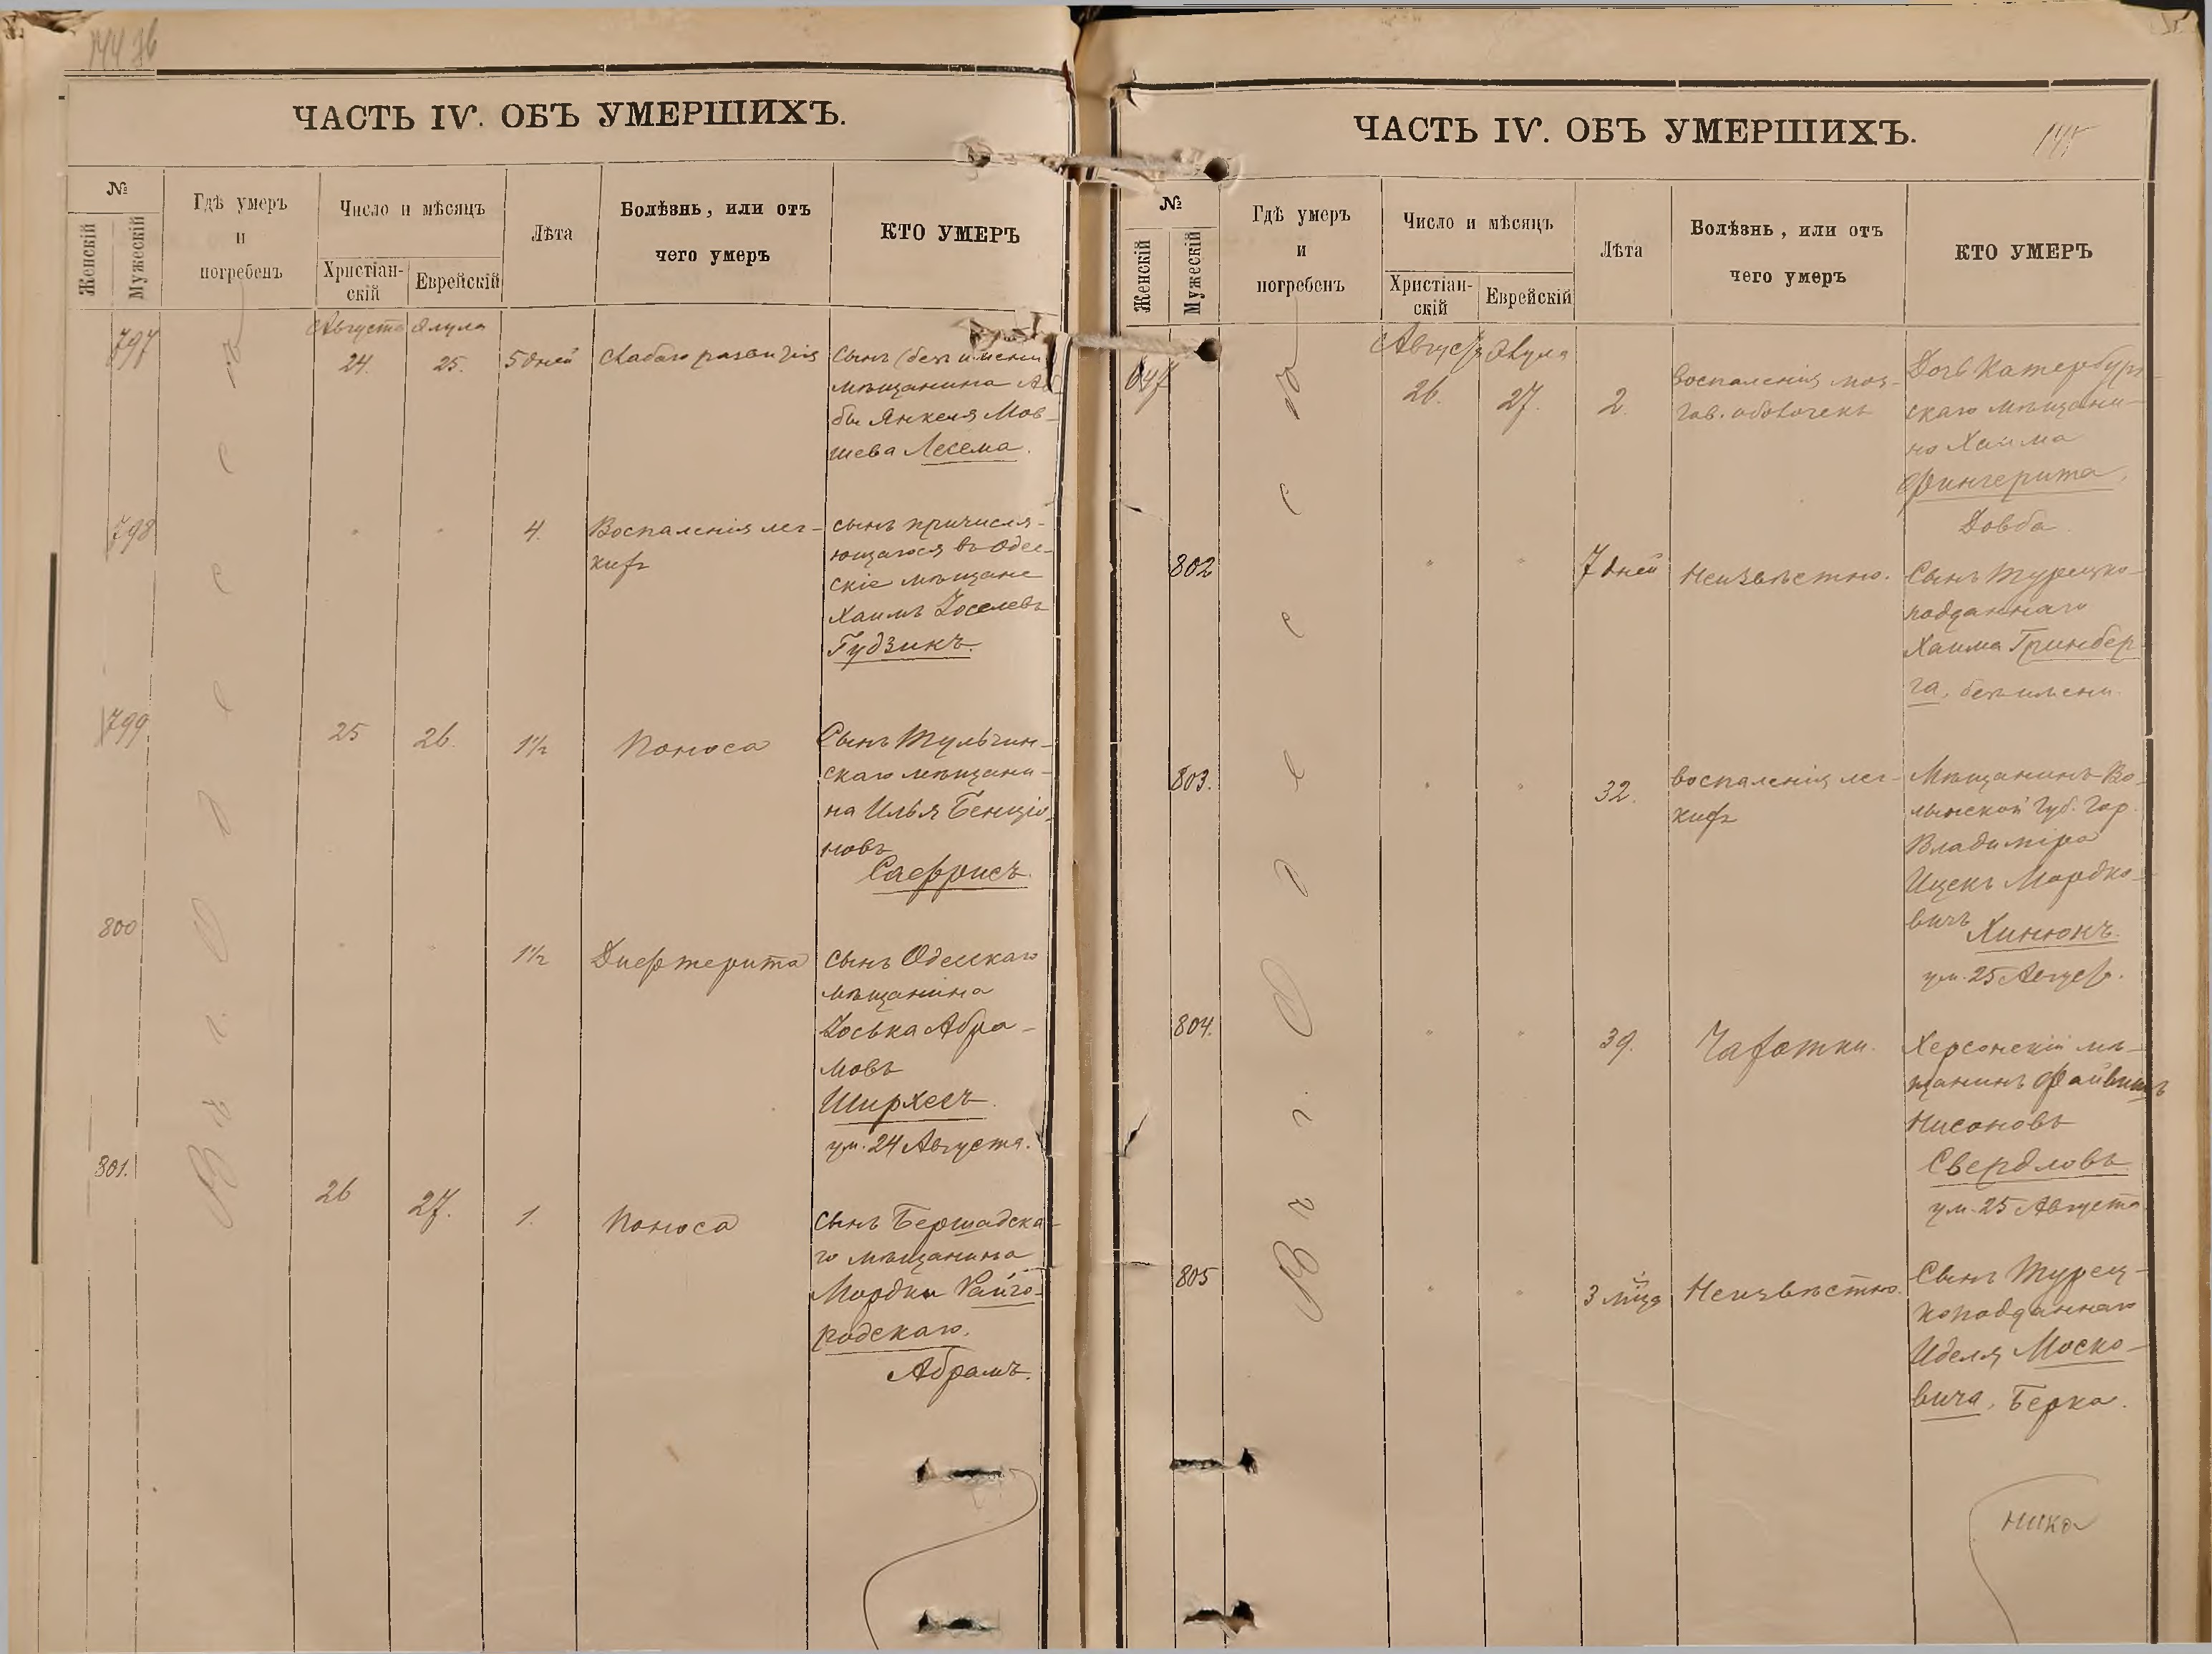 144 об
ЧАСТЬ IV. ОБЪ УМЕРШИХЪ.
№
Женскій
Мужескій
Гдѣ умеръ
и
погребенъ
Число и мѣсяцъ
Христіан-
скій
Еврейскій
Лѣта
Болѣзнь, или отъ
чего умеръ
КТО УМЕРЪ
Августа Элула
В г. Одессѣ
797
24. 25. 5 дней Слабаго развитія
Сынъ (безъ имени)
мѣщанина
бы Янкеля Мов-
шева Лесема.
798
" " 4. Воспаленія лег-
кихъ
сынъ причисля-
ющагося въ Одес-
скіе мѣщане
Хаимъ Іоселевъ
Гудзикъ.
799
25 26. 1½ Поноса
Сынъ Тульчин-
скаго мѣщани-
на Илья Бенціо-
новъ
Саефрисъ.
800
" " 1½ Дифтерита
сынъ Одесскаго
мѣщанина
Іоська Абра-
мовъ
Ширхесъ.
ум. 24 Августа.
801.
26 27. 1. Поноса
сынъ Бершадска-
го мѣщанина
Мордки Райго-
родскаго.
Абрамъ.
ЧАСТЬ IV. ОБЪ УМЕРШИХЪ.
145
№
Женскій
Мужескій
Гдѣ умеръ
и
погребенъ
Число и мѣсяцъ
Христіан-
скій
Еврейскій
Лѣта
Болѣзнь, или отъ
чего умеръ
КТО УМЕРЪ
Августа Элула
В г. Одессѣ
647
26. 27. 2. воспаленія моз-
гов. оболочекъ
Дочь Катербург-
скаго мѣщани-
на Хаима
Фингерита,
Довба.
802
" " 7 дней Неизвѣстно.
Сынъ Турецко-
подданнаго
Хаима Гринбер-
га, безъ имени.
803.
" " 32. воспаленія лег-
кихъ
Мѣщанинъ Во-
лынской Губ. Гор.
Владиміра
Ицекъ Мордко-
вичъ Хинюкъ.
ум. 25 Август.
804.
" " 39. Чахотки.
Херсонскій мѣ-
щанинъ Файвишъ
Нисоновъ
Свердловъ
ум. 25 Августа
805
" " 3 мѣц. Неизвѣстно.
Сынъ Турец-
коподданнаго
Иделя Моско-
вича, Берка.